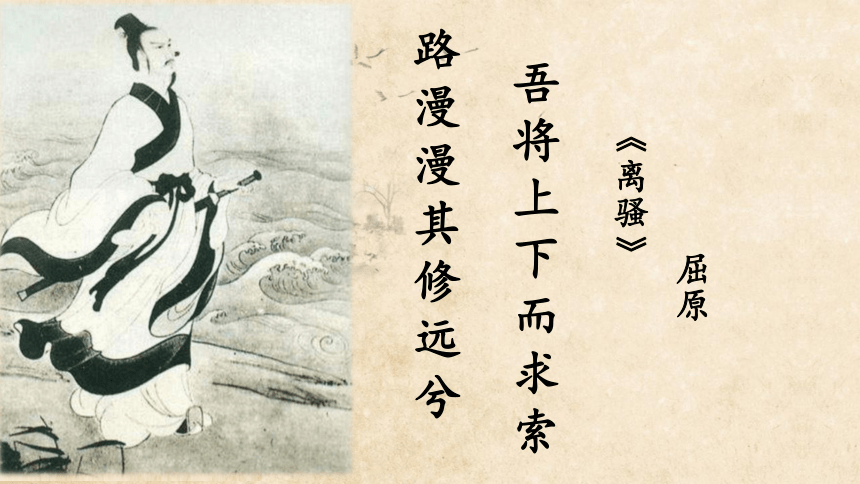 路漫漫其修远兮
吾将上下而求索
《离骚》
屈原